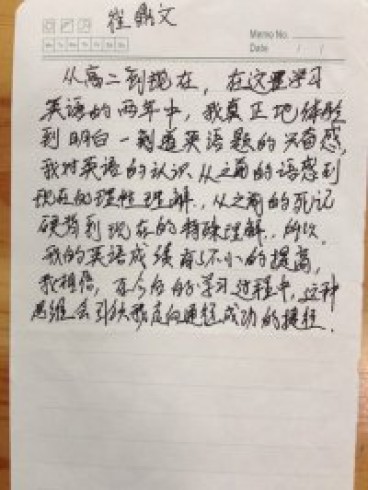 崔鼎文
Memo No.
Mo Tu We Th Fr Sa Su
Date / /
从高二到现在，在这里学习
英语的两年中，我真正地体验
到明白一到道英语题的兴奋感，
我对英语的认识从之前的语感到
现在的理性理解，从之前的死记
硬背到现在的特殊理解，所以，
我的英语成绩有了不小的提高，
我相信，在今后的学习过程中，这种
思维会引领我走向通往成功的捷径．